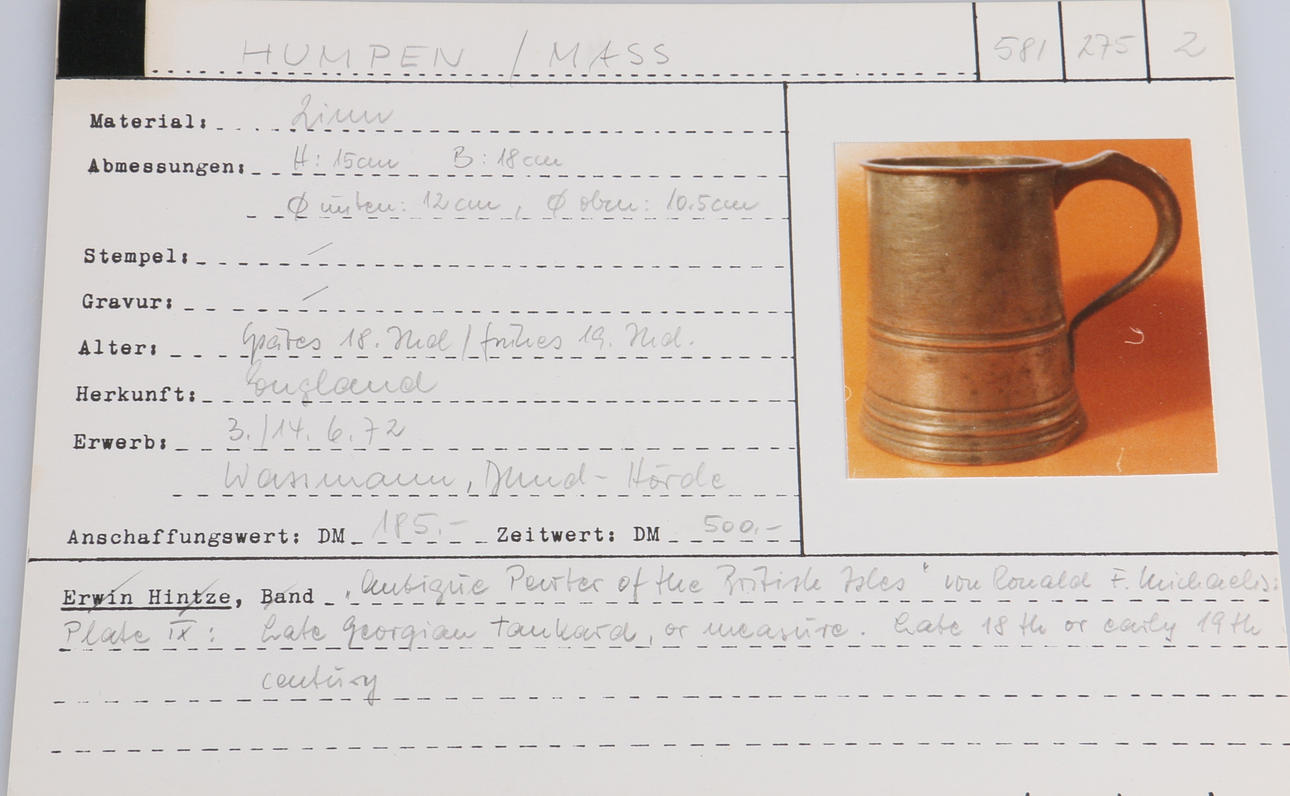 HUMPEN / MASS 581 275 2
Material: Zinn
Abmessungen: H: 15cm B: 18cm
Ø unten: 12cm, Ø oben: 10.5cm
Stempel: /
Gravur: /
Alter: Spätes 18. Jhd / frühes 19. Jhd.
Herkunft: England
Erwerb: 3./14. 6. 72
Wassmann, Dmd-Hörde
Anschaffungswert: DM 185.- Zeitwert: DM 500.-
Erwin Hintze, Band "Antique Pewter of the British Isles" von Ronald F. Michaelis:
Plate IX: Late Georgian tankard, or measure. Late 18th or early 19th
century